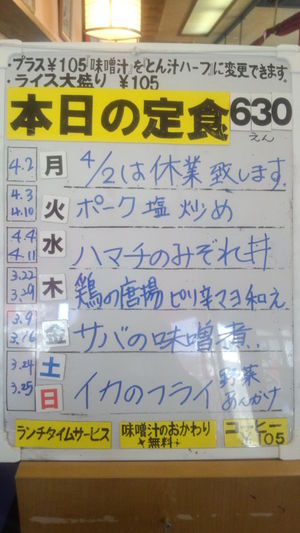 ・プラス¥105「味噌汁」を「とん汁ハーフ」に変更できます。
・ライス大盛り ¥105
本日の定食 630えん
4.2 月 4/2は休業致します。
4.3 4.10 火 ポーク塩炒め
4.4 4.11 水 ハマチのみぞれ丼
3.22 3.29 木 鶏の唐揚ピリ辛マヨ和え
3.9 3.16 金 サバの味噌煮
3.24 土
3.25 日 イカのフライ 野菜あんかけ
ランチタイムサービス
味噌汁のおかわり無料
コーヒー ¥105